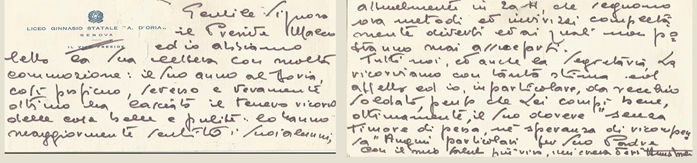 LICEO GINNASIO STATALE "A. D'ORIA"
GENOVA
Gentile Signora
il Preside
ed io abbiamo
letto la Sua lettera con molta
commozione: il Suo anno al Doria,
così proficuo, sereno e veramente
ottimo ha lasciato il tenero ricordo
delle cose belle e pulite. Lo hanno
maggiormente sentito i Suoi alunni,
attualmente in 2a H, che seguono
ora metodi ed indirizzi completa
mente diversi ed ai quali non po
tranno mai assuefarsi.
Tutti noi, ed anche la Segreteria, La
ricordiamo con tanta stima ed
affetto ed io, in particolare, da vecchio
soldato, penso che Lei compì bene,
ottimamente, il Suo dovere "senza
timore di pena, né speranza di ricompen
sa". Auguri particolari per Suo Padre
con il mio saluto più vivo, mi creda